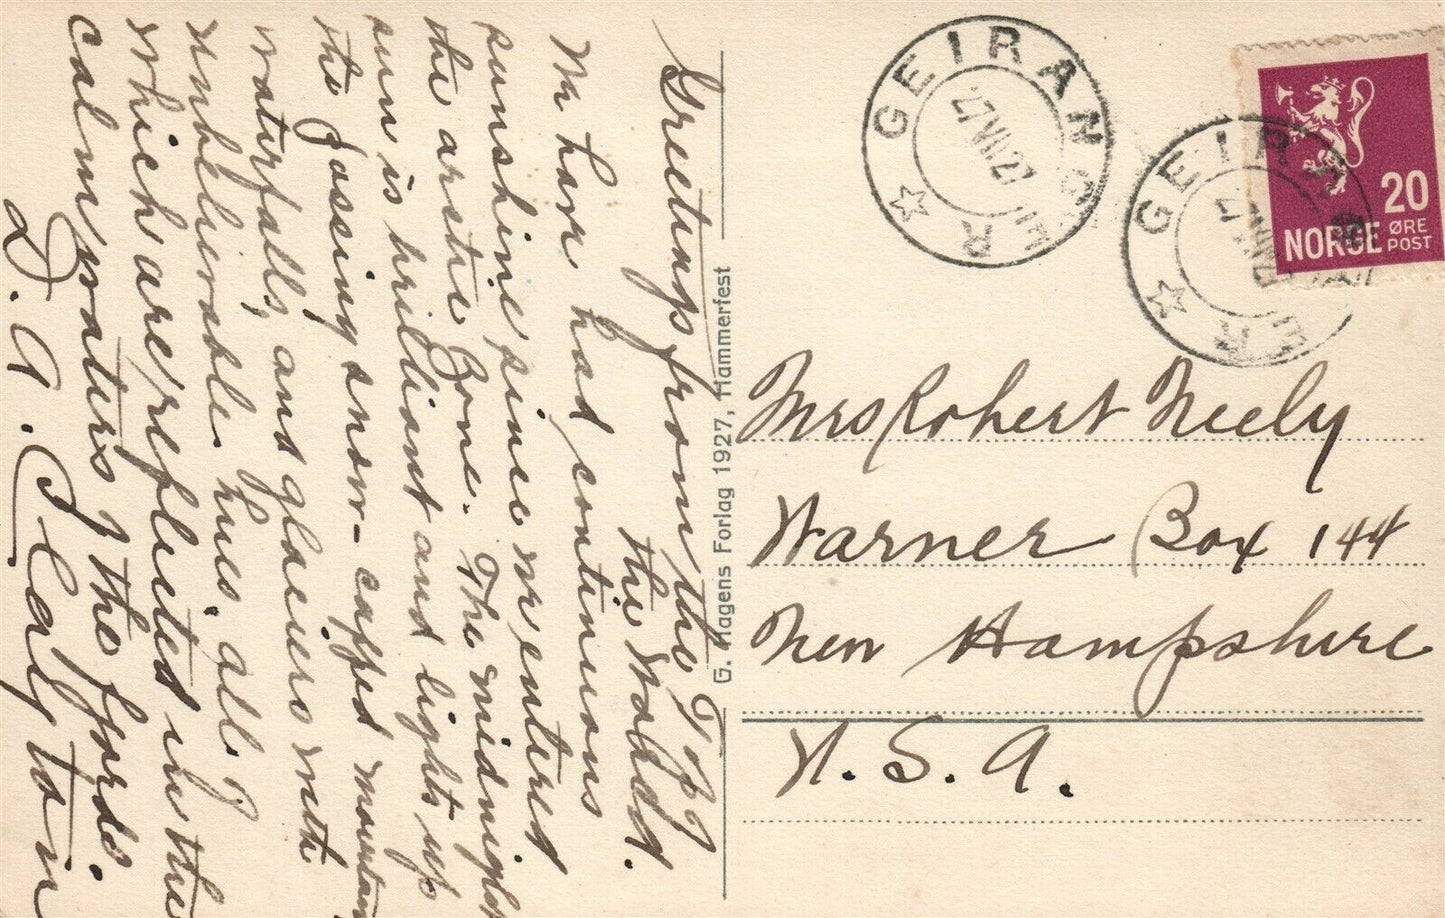 Greetings from the Top of
the World.
We have had continuous
sunshine since we entered
the arctic Zone. The midnight
sun is brilliant and lights up
the passing snow-capped mountain
waterfalls, and glaciers with
unbelievable hues, all of
which are reflected in the
calm waters of the fjords.
D. A. Clayton
G. Hagens Forlag 1927, Hammerfest
GEIRANGER
27 VII 27
GEIRANGER
27 VII 27
20
NORGE ØRE
POST
Mrs Robert Neely
Warner Box 144
New Hampshire
U.S.A.